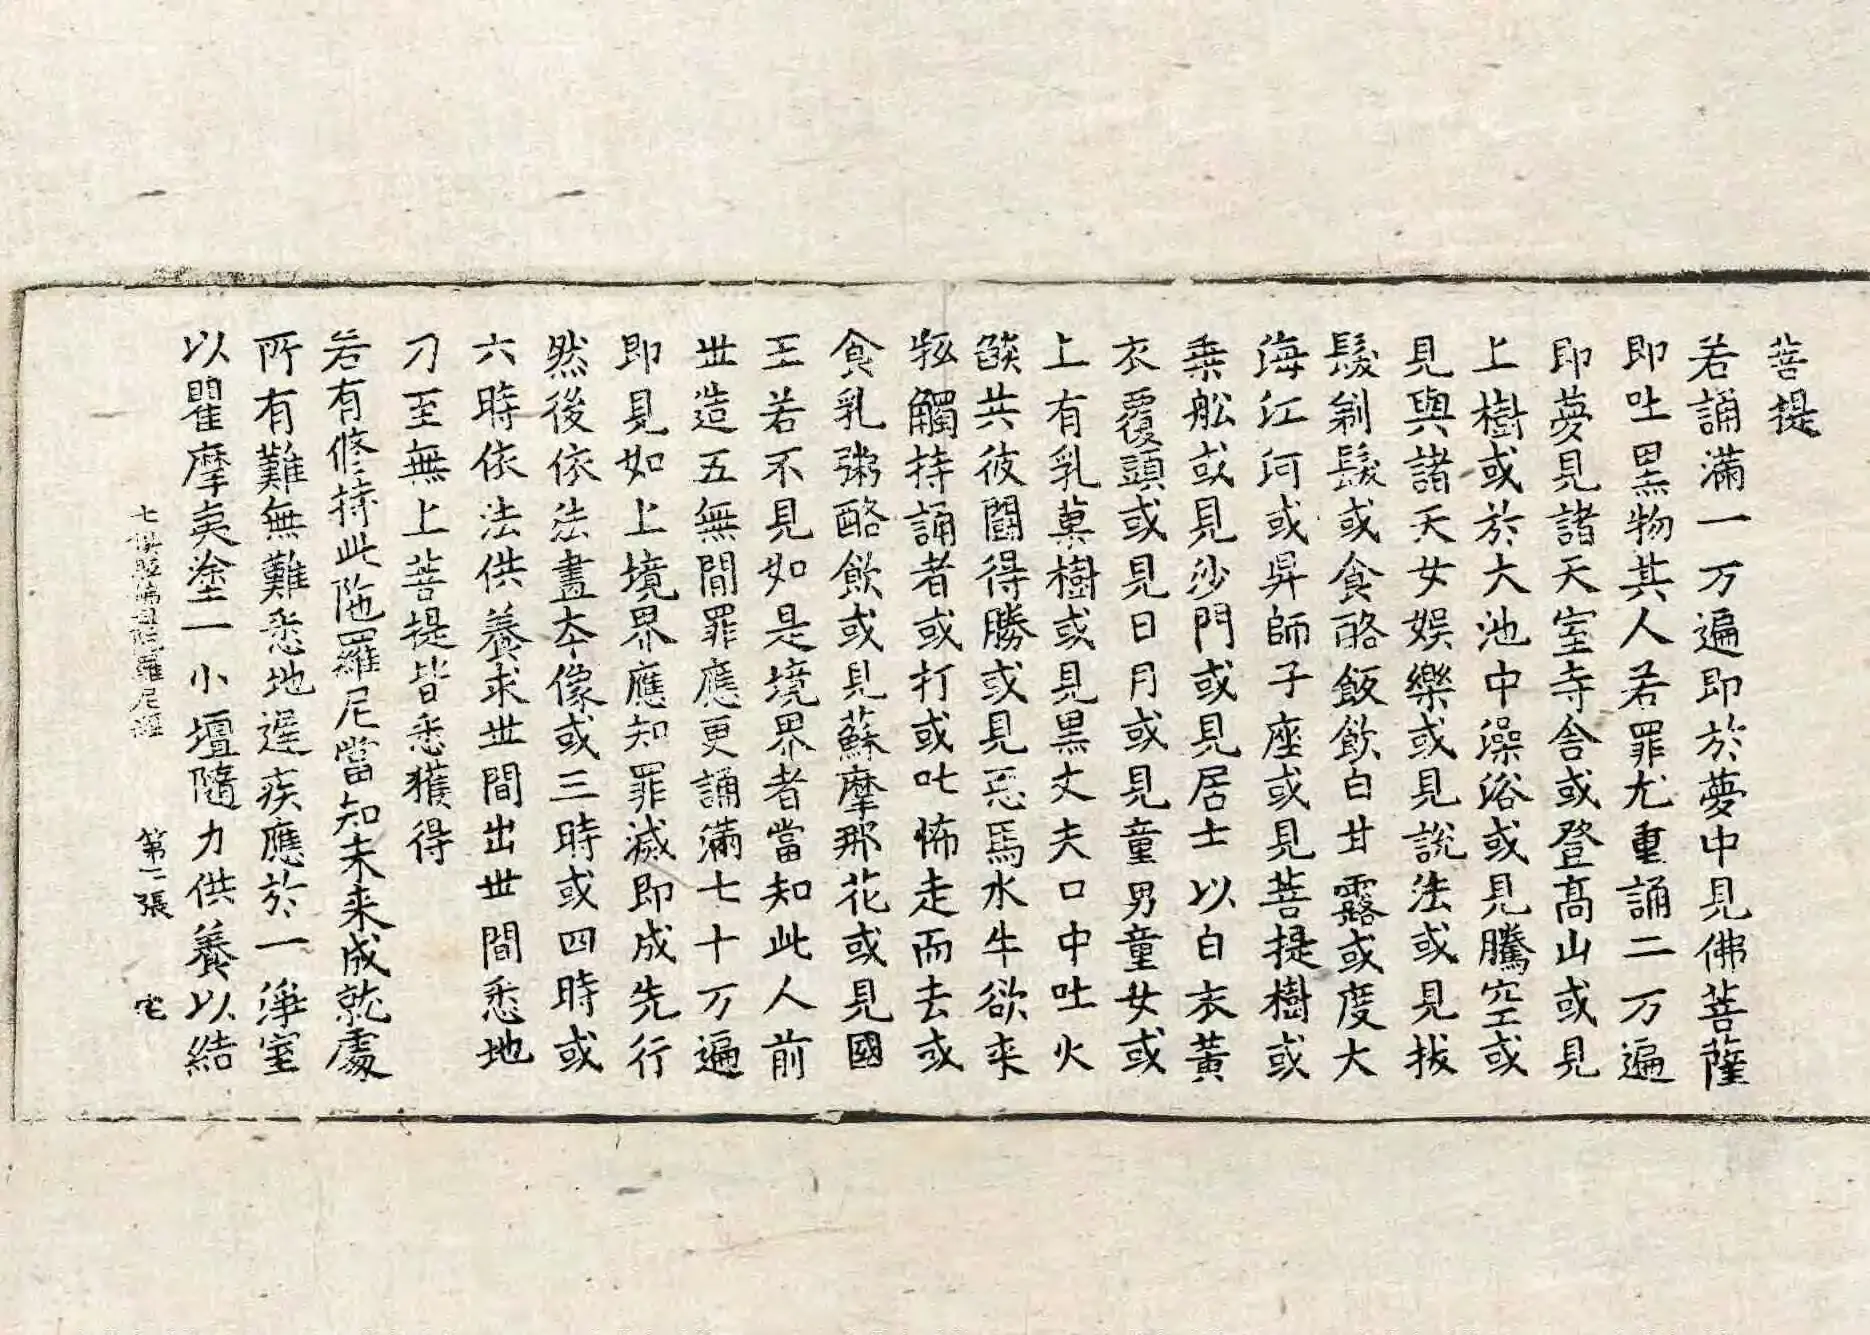 菩提
若誦滿一万遍即於夢中見佛菩薩
即吐黒物其人若罪尤重誦二万遍
即夢見諸天室寺舎或登髙山或見
上樹或於大池中澡浴或見騰空或
見與諸天女娯樂或見說法或見拔
髮剃髮或食酪飯飲白甘露或度大
海江河或昇師子座或見菩提樹或
乗舩或見沙門或見居士以白衣黃
衣覆頭或見日月或見童男童女或
上有乳菓樹或見黒丈夫口中吐火
燄共彼鬪得勝或見惡馬水牛欲来
觝觸持誦者或打或叱怖走而去或
食乳粥酪飲或見蘇摩那花或見國
王若不見如是境界者當知此人前
世造五無間罪應更誦滿七十万遍
即見如上境界應知罪滅即成先行
然後依法畫夲像或三時或四時或
六時依法供養求世間出世間悉地
刀至無上菩提皆悉獲得
若有修持此陁羅尼當知未来成就處
所有難無難悉地遅疾應於一淨室
以瞿摩夷塗一小壇隨力供養以結
七俱胝佛母陁羅尼經 第二張 宅